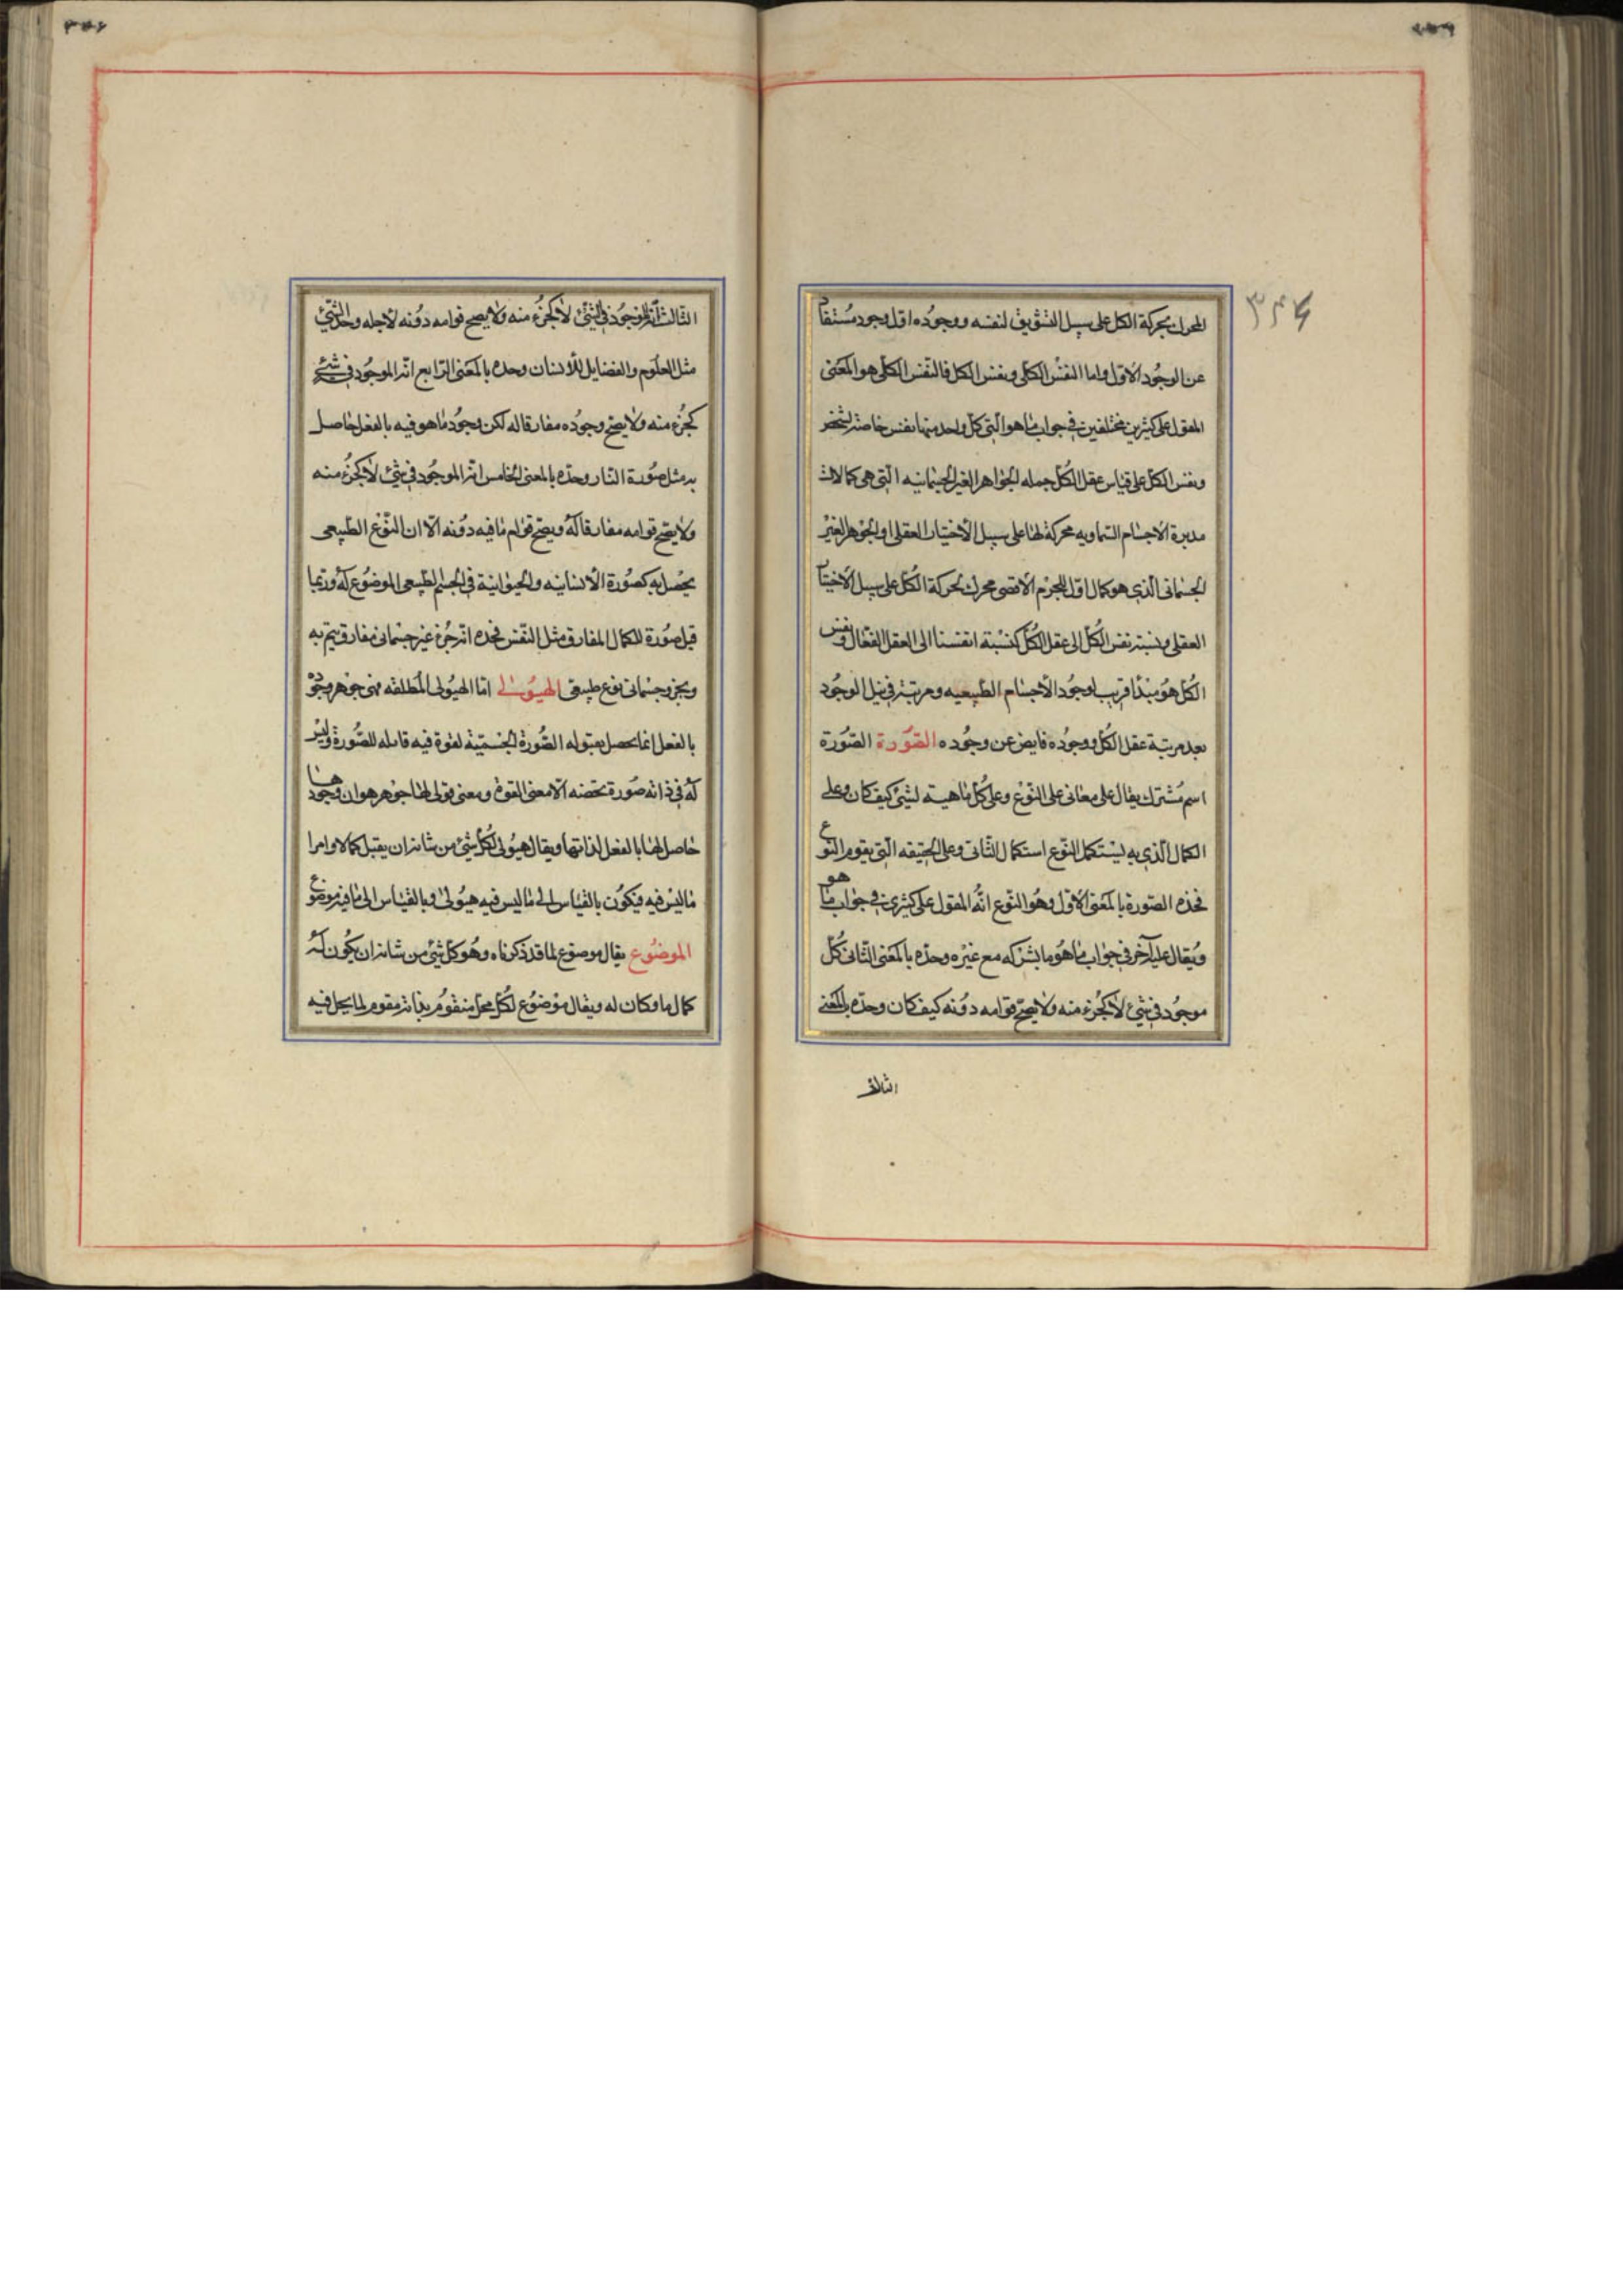 ٣٤٦
المحرك بحركة الكل على سبيل التشويق لنفسه ووجوده اول وجود مستفا
عن الوجود الاول واما النفس الكلى ونفس الكل فالنفس الكلى هو المعنى
المقول على كثيرين مختلفين فى جواب ما هو التى كل واحد منها نفس خاصة لشخص
ونفس الكل على قياس عقل الكل جمله الجواهر الغير الجسمانيه التى هى كمالات
مدبرة الاجسام السماويه محركة لها على سبيل الاختيار العقلى او الجوهر الغير
الجسمانى الذى هو كمال اول للجرم الاقصى محرك لحركة الكل على سبيل الاختيا
العقلى ونسبته نفس الكل الى عقل الكل كنسبة انفسنا الى العقل الفعال ونفس
الكل هو مبدأ قريب لوجود الاجسام الطبيعيه ومرتبته فى نيل الوجود
بعد مرتبة عقل الكل ووجوده فايض عن وجوده الصورة الصورة
اسم مشترك يقال على معانى على النوع وعلى كل ماهية لشئ كيف كان وعلى
الكمال الذى به ليستكمل النوع استكمال الثانى وعلى الحقيقه التى يقوم النوع
فحده الصورة بالمعنى الاول وهو النوع انه المقول على كثيرين فى جواب ما هو
ويقال عليه آخر فى جواب ما هو ما يشركه مع غيره وحده بالمعنى الثانى كل
موجود فى شئ لا كجزء منه ولا يصح قوامه دونه كيف كان وحده بالمعنى
الثالث
الثالث انه الموجود فى الشئ لا كجزء منه ولا يصح قوامه دونه لاجله وجد الشئ
مثل العلوم والفضايل للانسان وحده بالمعنى الرابع انه الموجود فى شئ
كجزء منه ولا يصح وجوده مفارقا له لكن وجود ما هو فيه بالفعل حاصل
به مثل صورة النار وحده بالمعنى الخامس انه الموجود فى شئ لا كجزء منه
ولا يصح قوامه مفارقا له ويصح قوام ما فيه دونه الا ان النوع الطبيعى
يحصل به كصورة الانسانيه والحيوانية فى الجسم الطبيعى الموضوع له وربما
قيل صورة للكمال المفارق مثل النفس فحده انه جزء غير جسمانى مفارق يتم به
وبجزء جسمانى نوع طبيعى الهيولى اما الهيولى المطلقه فهى جوهر وجوده
بالفعل انما يحصل بقبوله الصورة الجسمية لقوة فيه قابله للصورة وليس
له فى ذاته صورة تخصه الا معنى القوة ومعنى قولى لها جوهر هو ان وجودها
حاصل لها بالفعل لذاتها ويقال هيولى لكل شئ من شانه ان يقبل كمالا وامرا
ما ليس فيه فيكون بالقياس الى ما ليس فيه هيولى وبالقياس الى ما فيه موضوع
الموضوع يقال موضوع لما قد ذكرناه وهو كل شئ من شانه ان يكون له
كمال ما وكان له ويقال موضوع لكل محل متقوم بذاته مقوم لما يحل فيه